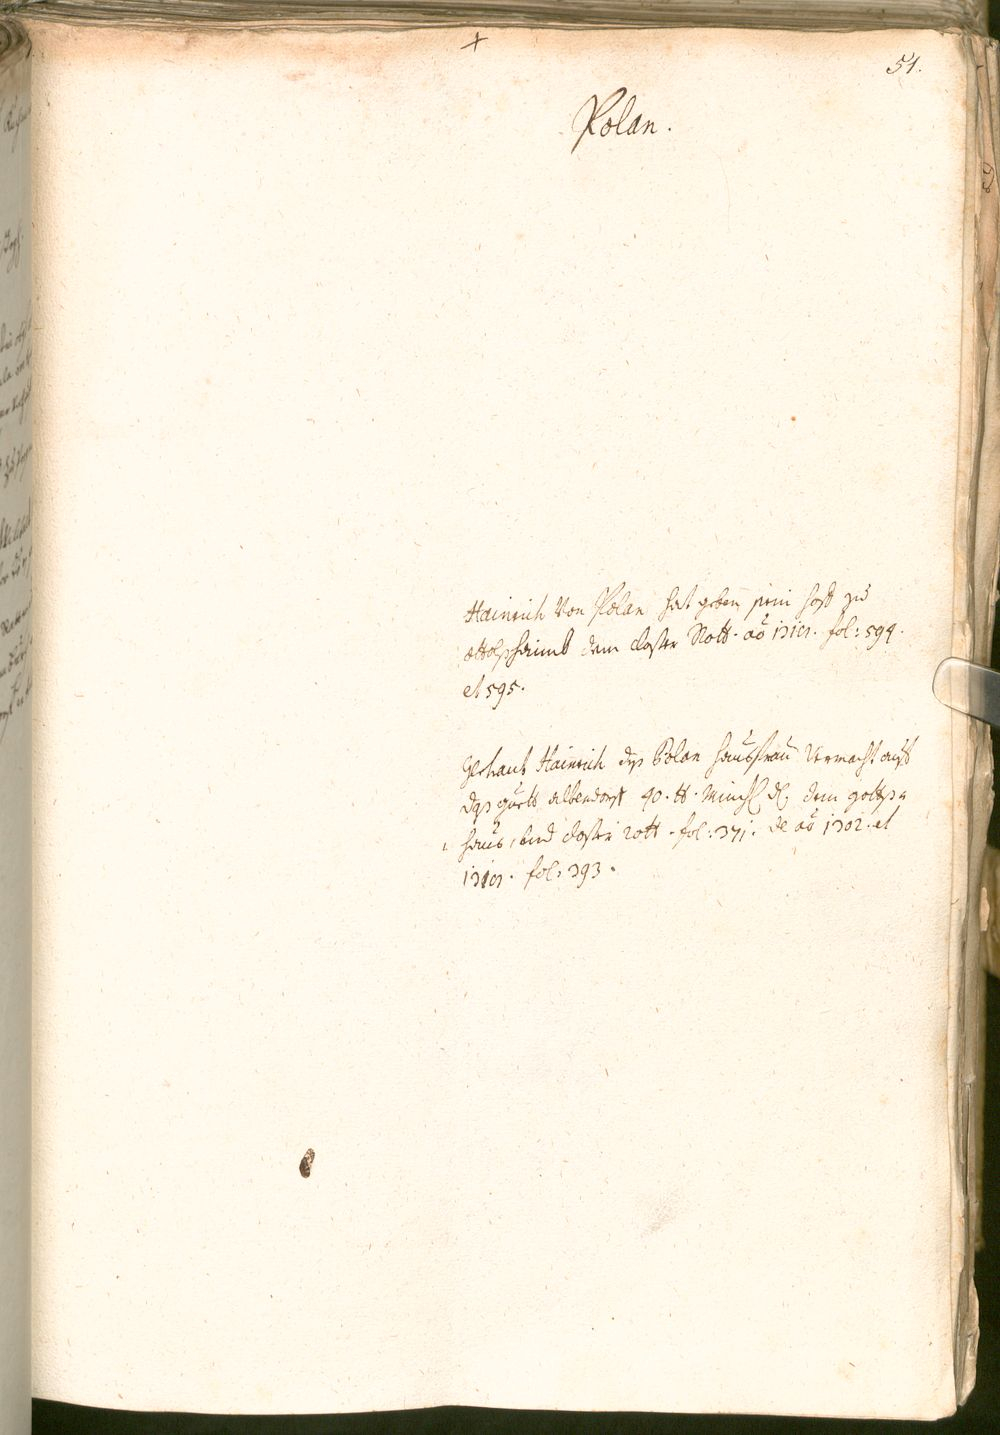 +
51.
Polan.
Hainrich Von Polan hat geben sein hoff zu
ottolshaimb dem closter Rott. aõ 1310. fol: 594.
et 595.
Hainrich des Polan hausfrau Vermacht auß
des guets albendorff 40. tt. Minch. dl. dem gottß=
haus, und closter rott. fol: 371. de aõ 1302. et
1310. fol: 393.